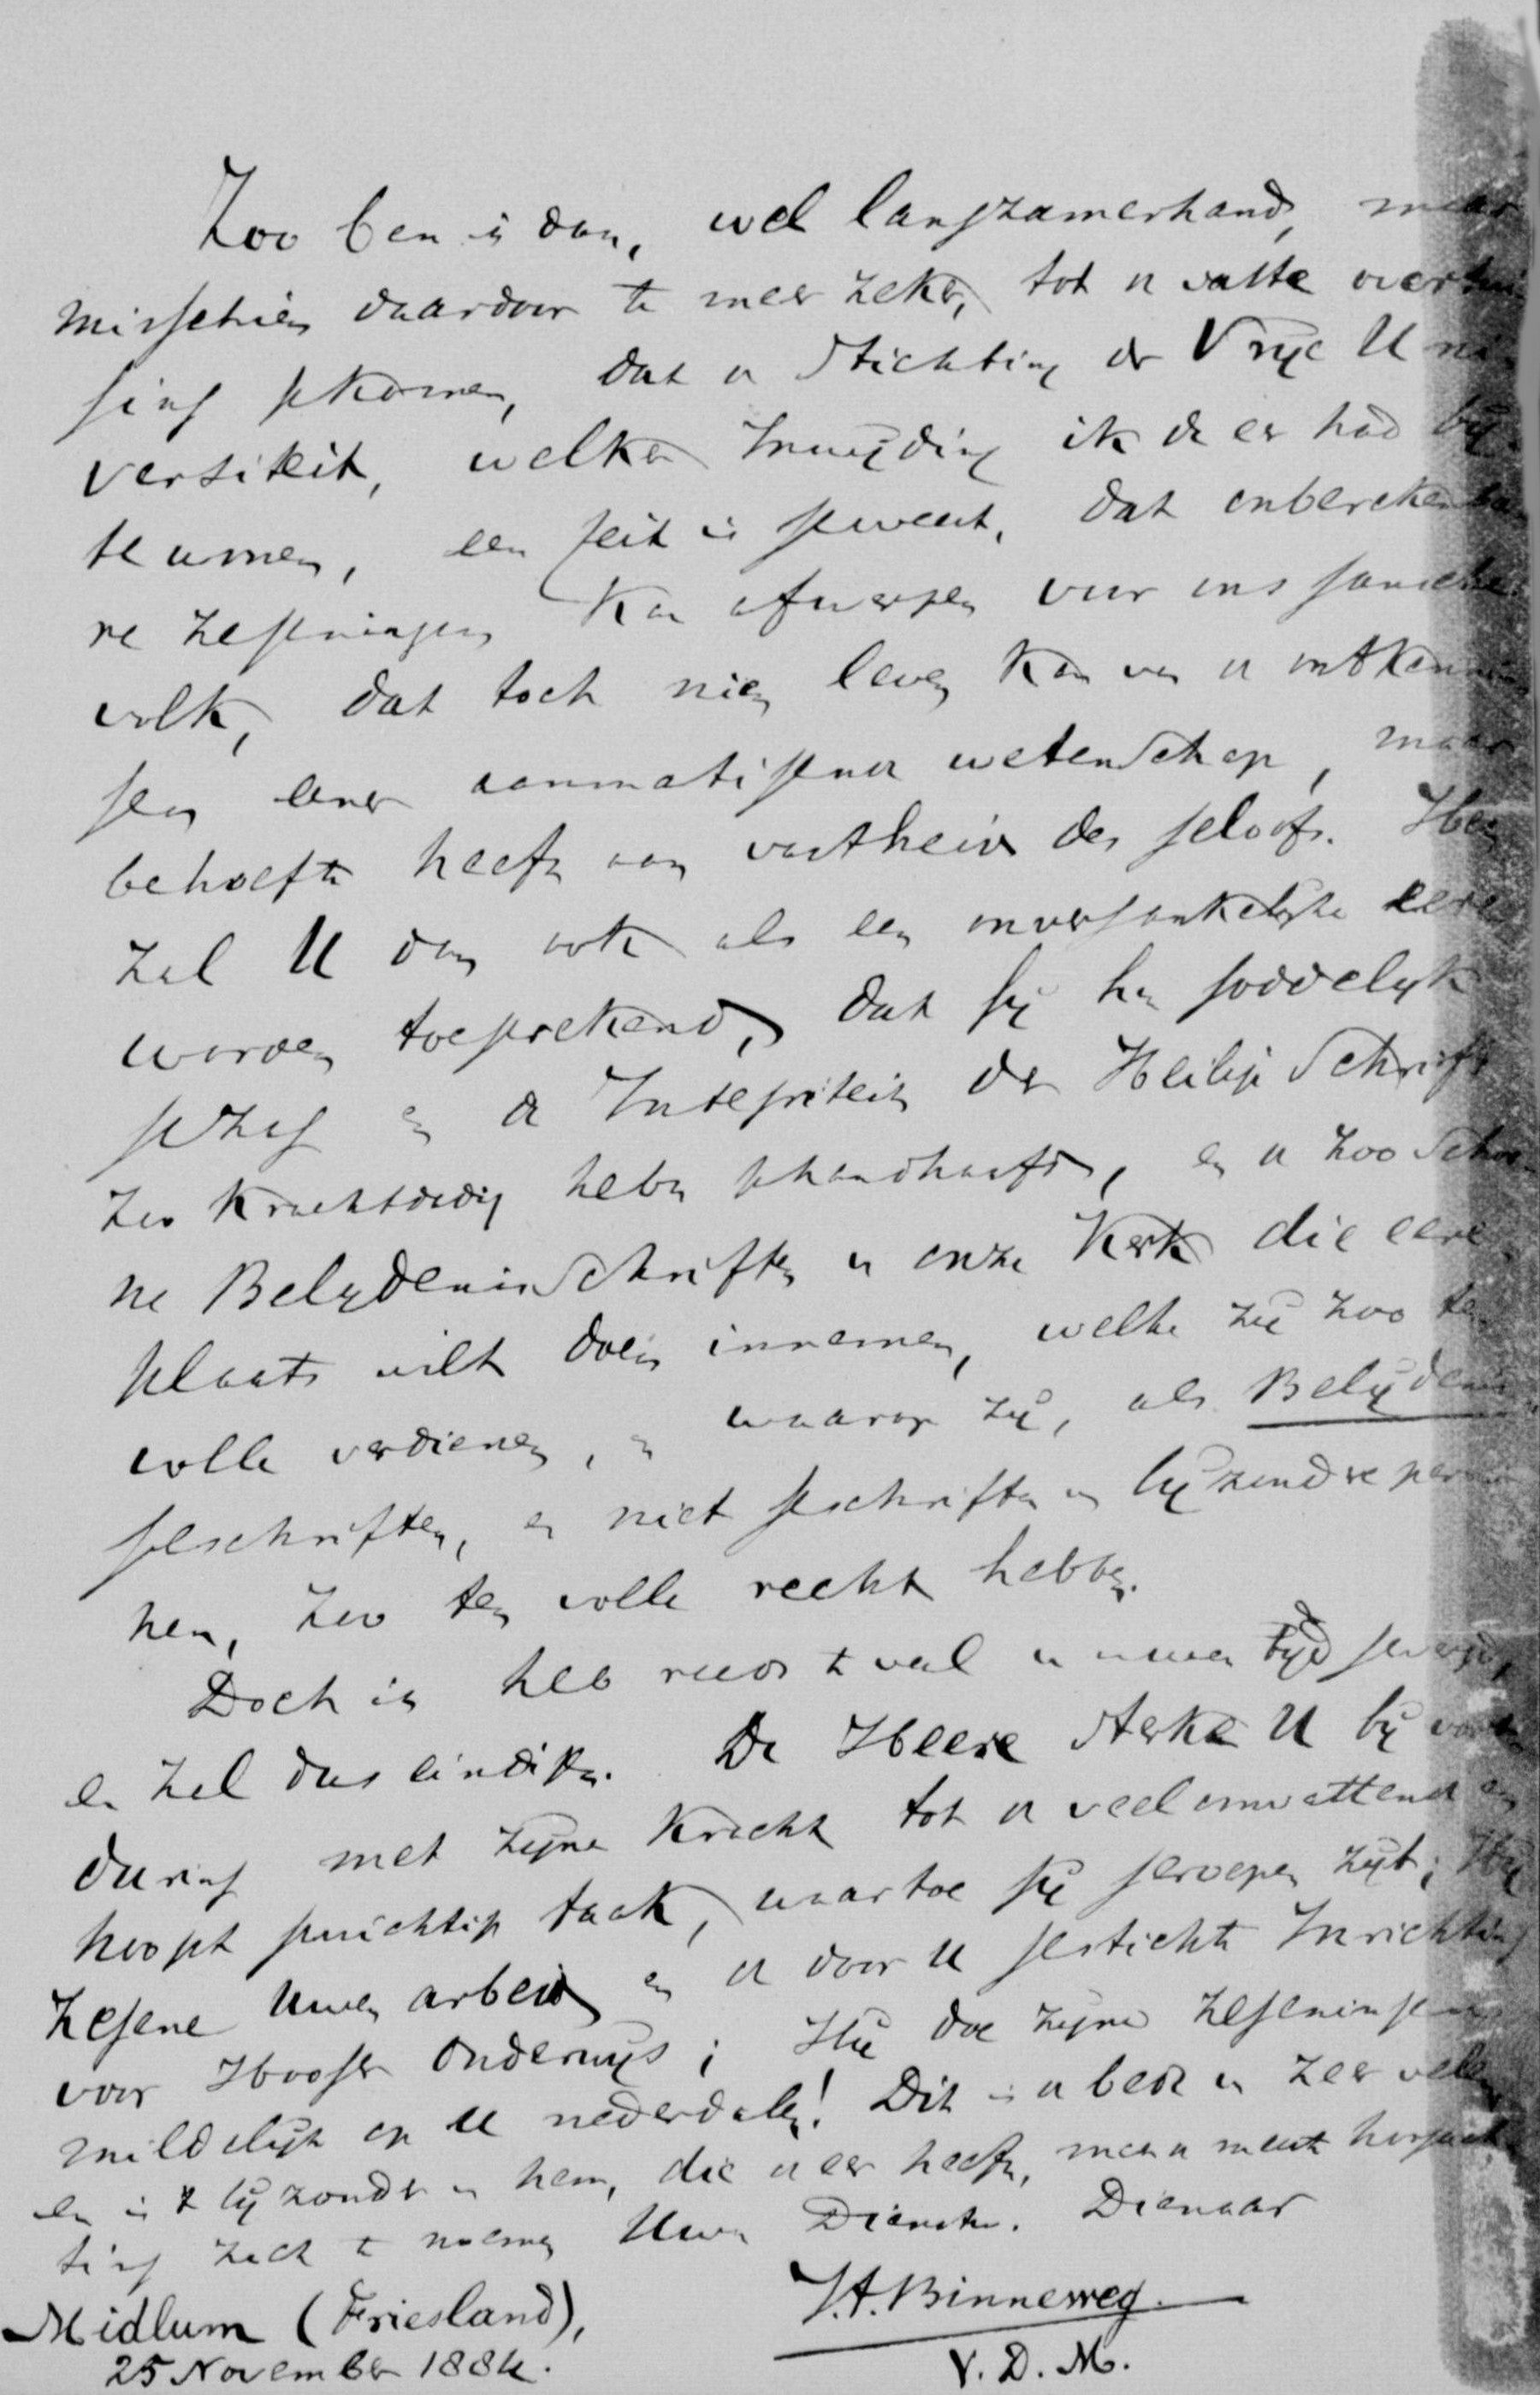 Zoo ben ik dan, wel langzamerhand, maar
misschien daardoor te meer zeker, tot de vaste overtui
ging gekomen, dat de Stichting der Vrije Uni
versiteit, welker Inwijding ik de eer had bij
te wonen, een feit is geweest, dat onberekenba
re zegeningen kan afwerpen voor ons gansche
volk, dat toch niet leven kan van de ontkennin
gen eener aanmatigende wetenschap, maar
behoefte heeft aan vastheid des geloofs. Het
zal U dan ook als een onvergankelijke eere
worden toegerekend, dat gij het goddelijk
gezag en de Integriteit der Heilige Schrift
zoo krachtdadig hebt gehandhaafd, en de zoo schoo
ne Belijdenisschriften in onze Kerk die eere
plaats wilt doen innemen, welke zij zoo ten
volle verdienen, en waarop zij, als Belijdenis
geschriften, en niet geschriften van bijzondere perso
nen, zoo ten volle recht hebben.
Doch ik heb reeds te veel van uwen tijd gevergd,
en zal dus eindigen. De Heere sterke U bij voort
during met zijne kracht tot de veelomvattende en
hoogst gewichtige taak, waartoe gij geroepen zijt; Hij
zegene Uwen arbeid en de door U gestichte Inrichting
voor Hooger Onderwijs; Hij doe zijne zegeningen
mildelijk op U nederdalen! Dit is de bede van zeer velen
en in 't bijzonder van hem, die de eer heeft, met de meeste hoogach
ting zich te noemen Uwen Dienstw. Dienaar
J.A. Binneweg.
V. D. M.
Midlum (Friesland),
25 November 1884.